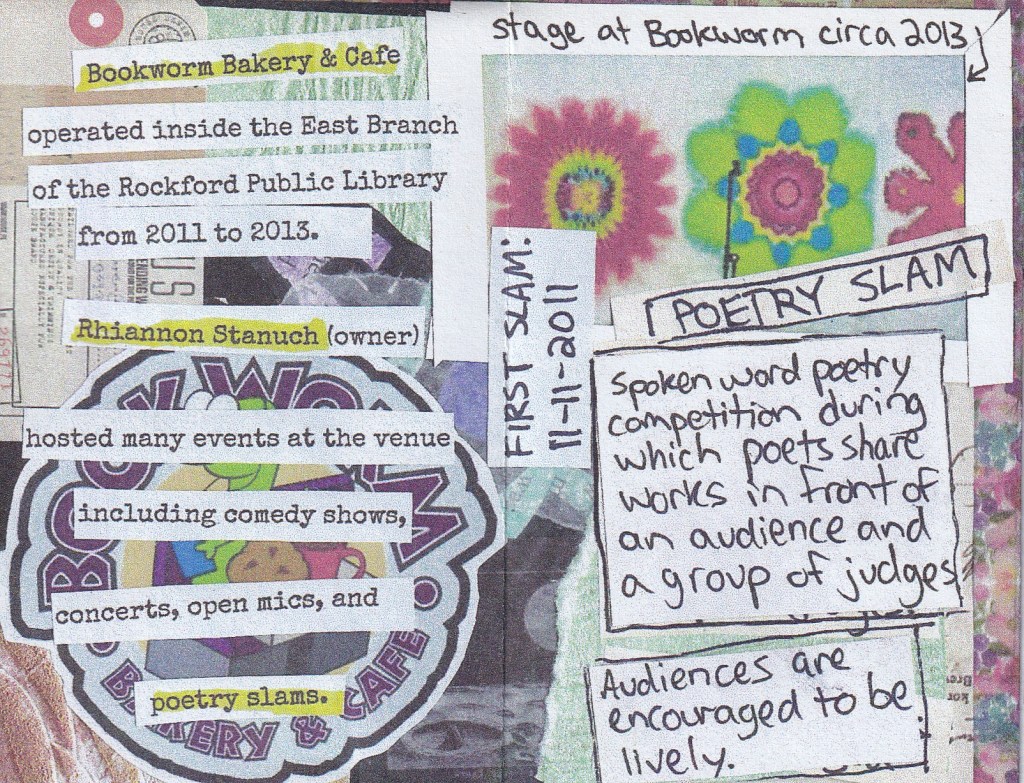 Bookworm Bakery & Cafe
operated inside the East Branch
of the Rockford Public Library
from 2011 to 2013.
Rhiannon Stanuch (owner)
hosted many events at the venue
including comedy shows,
concerts, open mics, and
poetry slams.
BAKERY & CAFE
stage at Bookworm circa 2013
FIRST SLAM:
11-11-2011
POETRY SLAM
Spoken word poetry
competition during
which poets share
works in front of
an audience and
a group of judges
Audiences are
encouraged to be
lively.